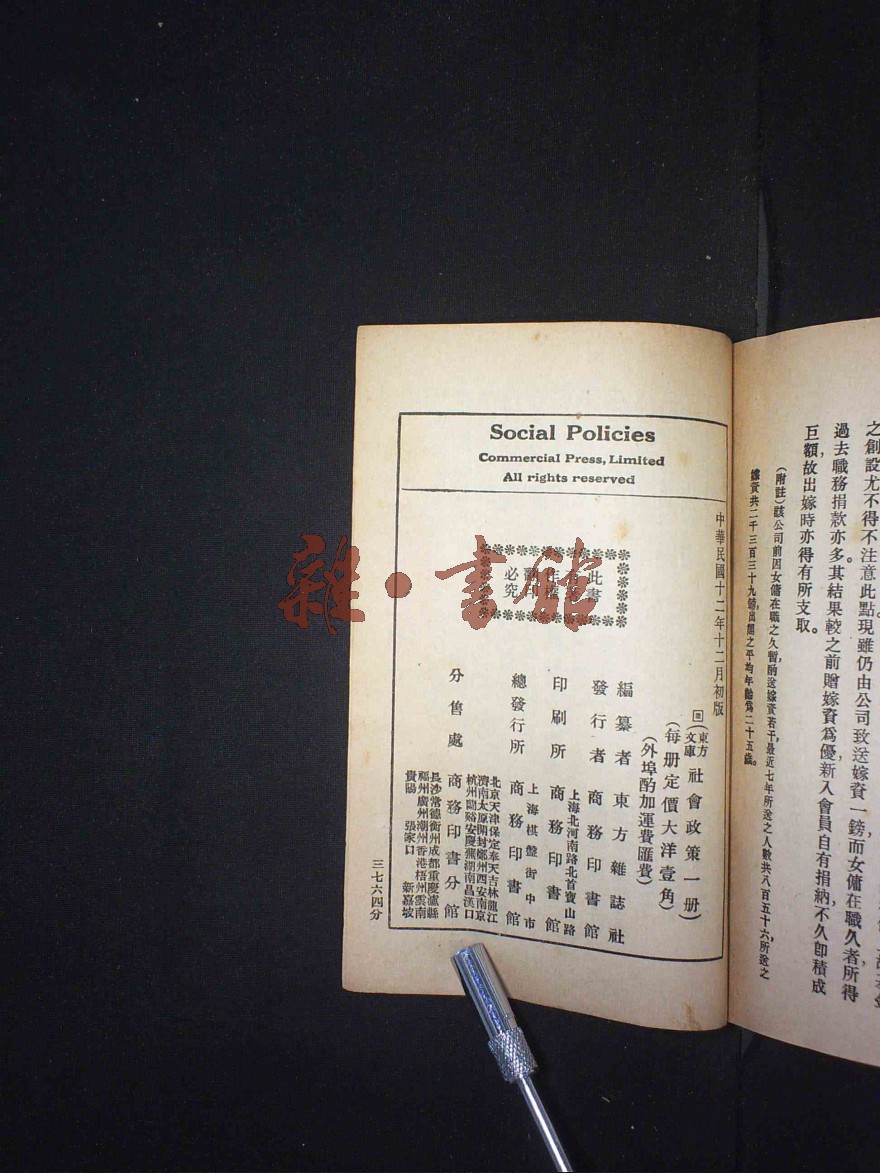 Social Policies
Commercial Press, Limited
All rights reserved
中華民國十二年十二月初版
(東方文庫)社會政策一册
(每册定價大洋壹角)
(外埠酌加運費匯費)
編纂者 東方雜誌社
發行者 商務印書館
上海北河南路北首寶山路
印刷所 商務印書館
上海棋盤街中市
總發行所 商務印書館
北京天津保定奉天吉林龍江
濟南太原開封鄭州西安南京
杭州蘭谿安慶蕪湖南昌漢口
分售處 商務印書分館
長沙常德衡州成都重慶瀘縣
福州廣州潮州香港梧州雲南
貴陽 張家口 新嘉坡
此書
翻印
必究
三七六四分
雜·書館
之創設尤不得不注意此點現雖仍由公司致送嫁資一鎊而女傭在職久者所得
過去職務捐款亦多其結果較之前贈嫁資爲優新入會員自有捐納,不久卽積成
巨額,故出嫁時亦得有所支取。
(附註)該公司前因女傭在職之久暫酌送嫁資若干,最近七年所送之人數共八百五十六,所送之
嫁資共二千三百三十九鎊,出閣之平均年齡爲二十五歲。